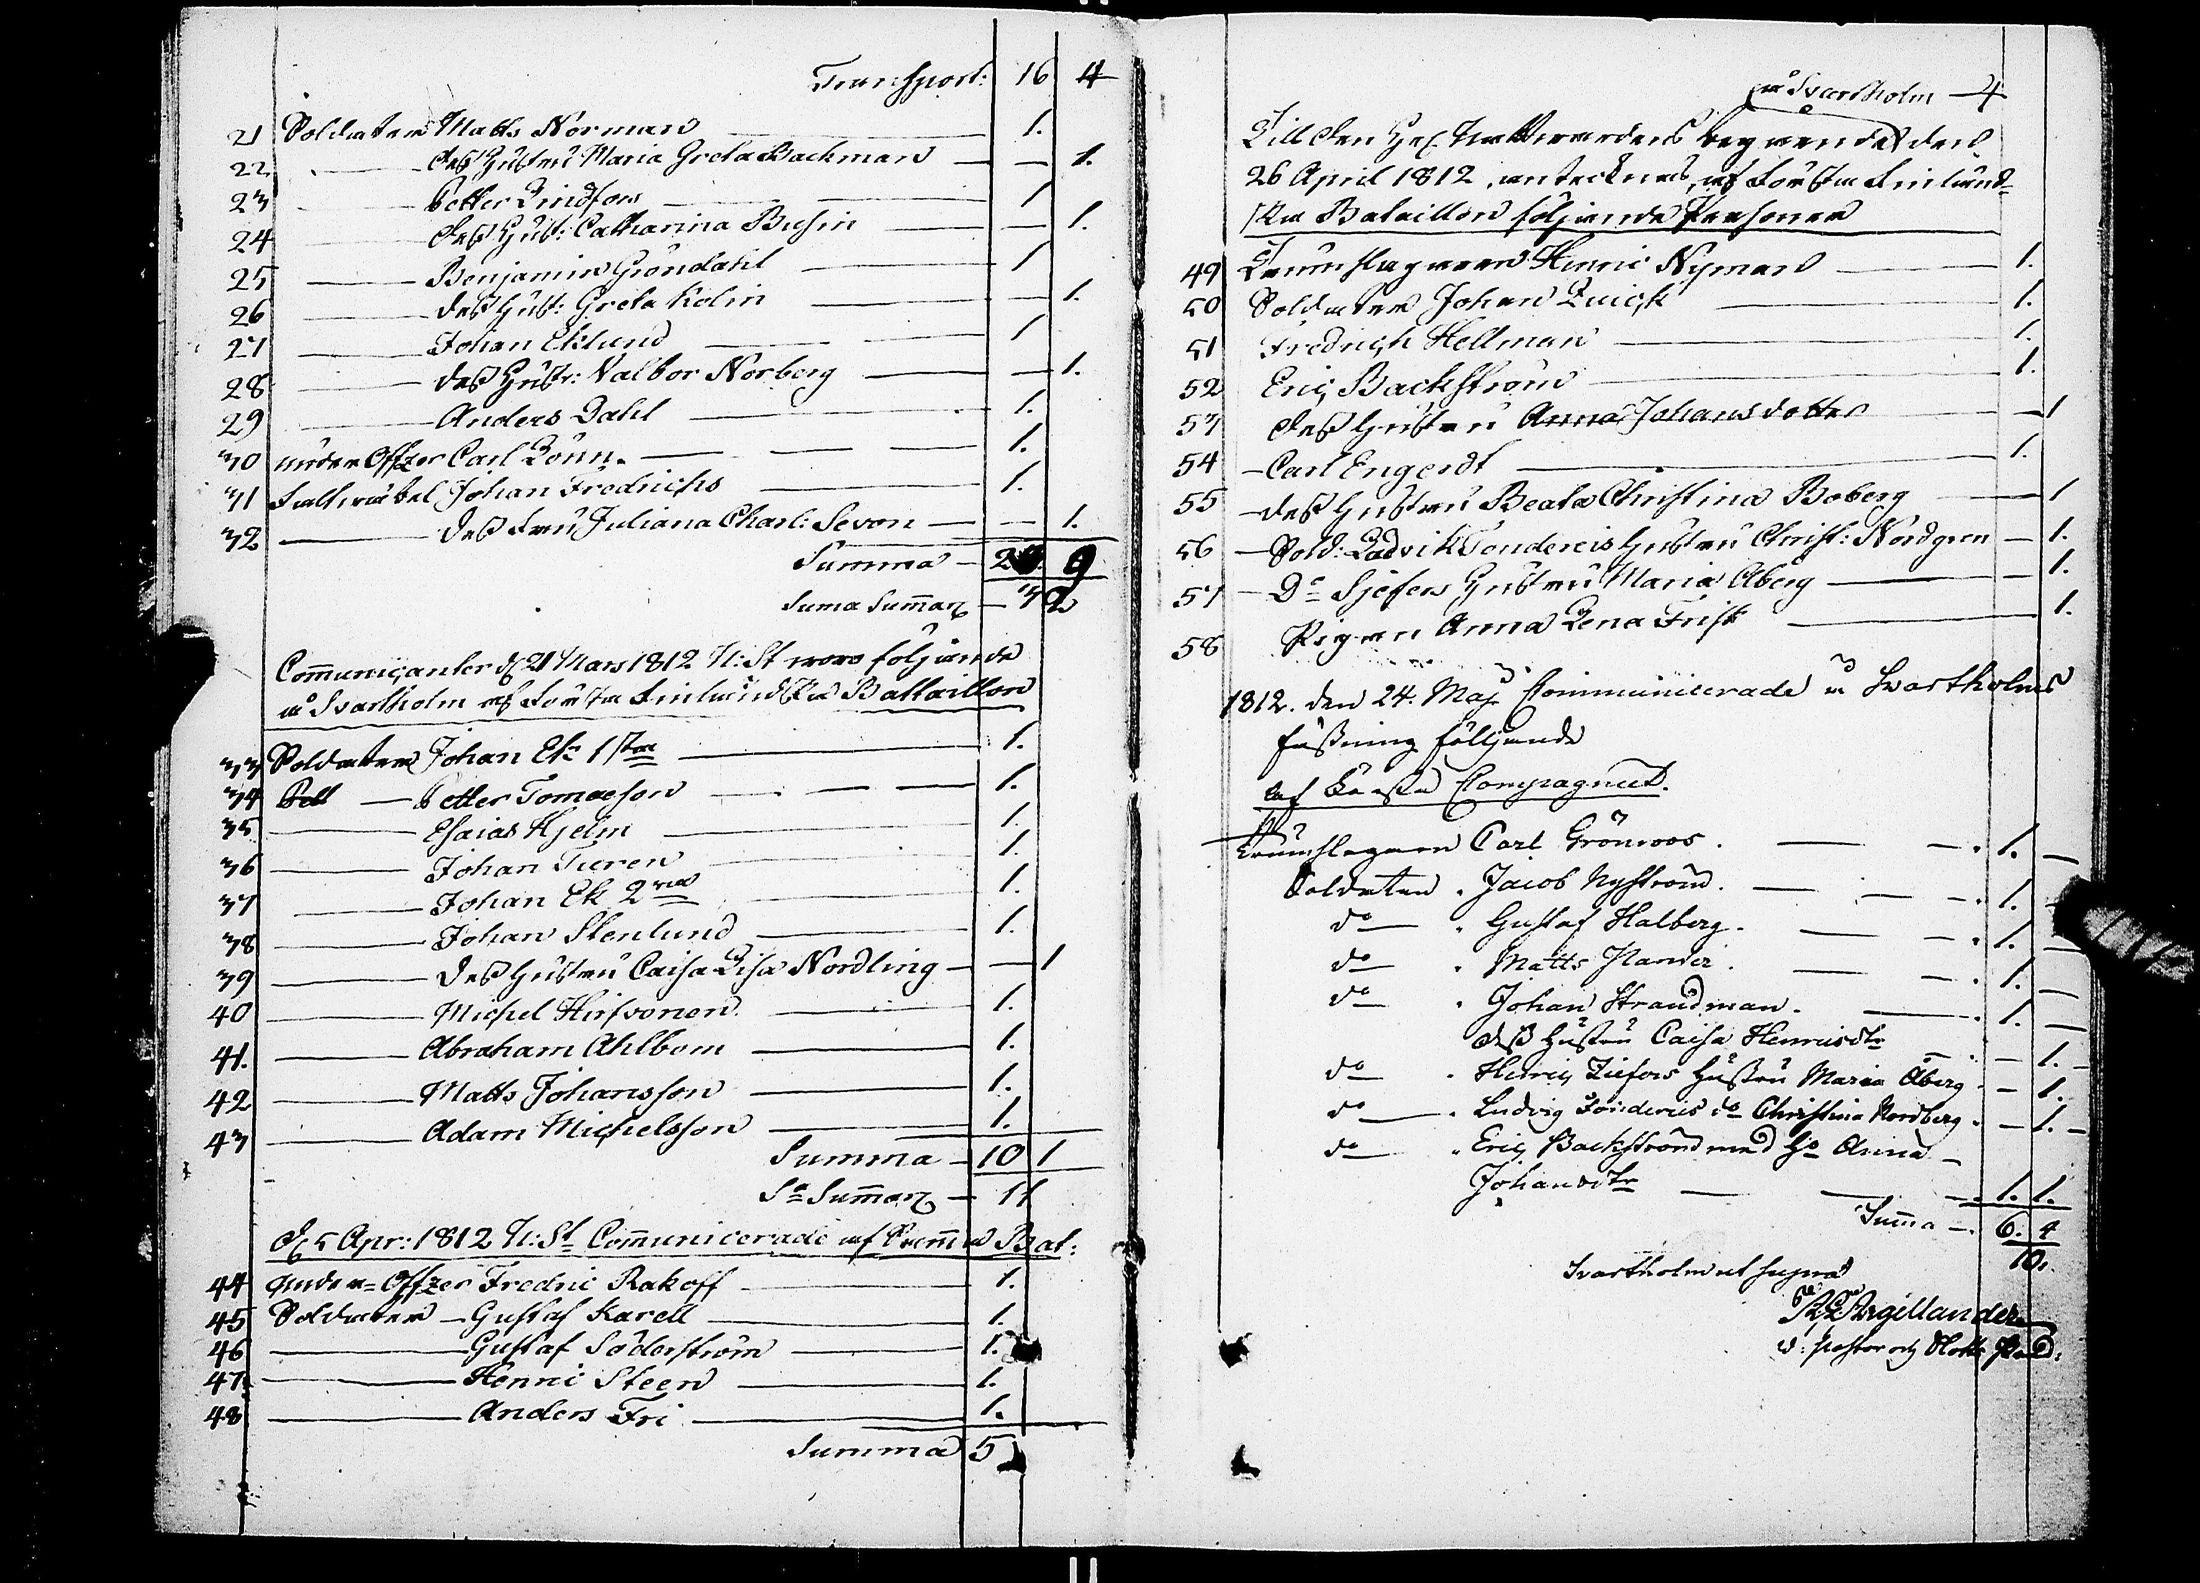 Transport: 16 4
21 Soldaten Matts Norman — 1.
22 — deß Hustru Maria Greta Backman — — 1.
23 — Petter Lindfors — 1
24 — deß Hust: Catharina Busin — — 1.
25 — Benjamin Gröndahl — 1
26 — deß Hust: Greta Kolin — — 1.
27 — Johan Eklund — 1
28 — deß Hustr: Valbor Norberg — — 1.
29 — Anders Dahl — 1.
30 under Offzer Carl Lönn. — 1.
31 Faltwäbel Johan Fredrichs — 1.
32 — deß Fru Juliana Charl: Sevon — — 1.
Summa — 9
Suma Sumar — 32
Communicanter d 21 Mars 1812 N: St woro följande
å Svartholm af Första Finlandska Battaillon
33 Soldaten Johan Ek 1sta — 1.
34 Pett — Petter Tomaeson — 1.
35 — Esaias Hjelm — 1.
36 — Johan Turen — 1.
37 — Johan Ek 2dra — 1.
38 — Johan Stenlund — 1.
39 — deß Hustru Caisa Lisa Nordling — — 1
40 — Michel Hirfvonen. — 1.
41. — Abraham Ahlbom — 1.
42 — Matts Johansson — 1.
43 — Adam Michelsson — 1.
Summa — 10 1
Sa Sumar — 11
d 5 Apr: 1812 N: St Communicerade af Samma Bat:
44 under Offzer Fredric Rakoff — 1.
45 Soldaten — Gustaf Karell — 1.
46 — Gustaf Söderström — 1.
47. — Henric Steen — 1.
48 — Anders Fri — 1.
Summa 5
på Svartholm — 4
Till den Hel. Nattwardens begående den
26 April 1812, antecknas, af Första Finländ-
ska Bataillon följande Personer
49 Trumslagaren Henric Nyman — 1.
50 Soldaten Johan Quick — 1.
51 Fredrich Hellman — 1.
52 Eric Backström — 1.
53 deß Hustru Anna Johansdotter — 1
54 — Carl Engerdt — 1.
55 — deß Hustru Beata Christina Boberg — 1
56 — Sold: Ladvik Tondereis Hustru Christ: Nordgren — 1.
57 — Do Sjefers Hustru Maria Åberg — 1.
58 Pigan Anna Lena Frisk — 1.
1812. den 24. Maj Communicerade å Svartholms
fästning följande
af Första Compagniet.
Trumslagaren Carl Grönroos. — 1. —
Soldaten. Jacob Nyström. — 1. —
do — . Gustaf Halberg. — 1. —
do — . Matts Hander. — 1. —
do — . Johan Strandman. — 1. —
deß Hustru Caisa Henricsdtr — 1. —
do — . Henric Ziefers Hustru Maria Åberg — 1.
do — . Ludvig Tondereis do Christina Nordberg. — 1. —
do — . Eric Backström med Ho Anna —
Johansdtr — 1. 1.
Summa — 6. 4
10.
Svartholm ut supra
Argillander
v: pastor och Slotts Pred: